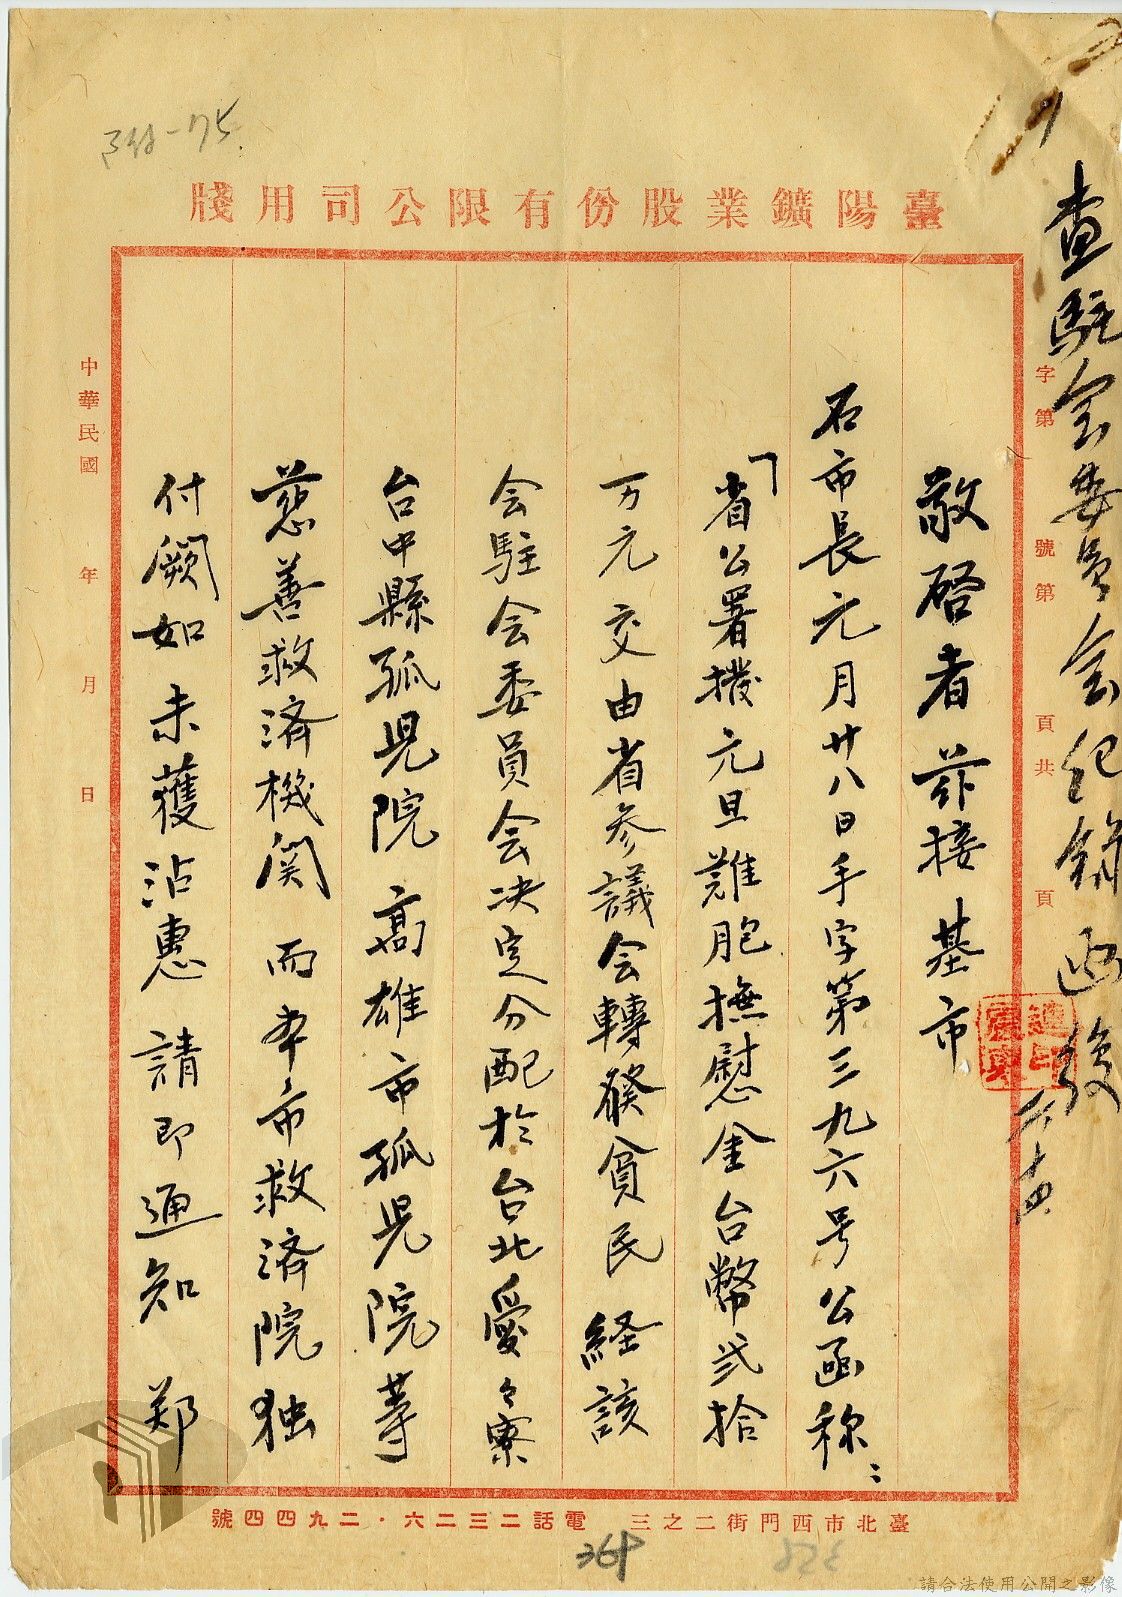 附-75
臺陽鑛業股份有限公司用牋
查駐会委員会纪錄函後
字第 號第 頁共 頁
敬啓者 茲接基市
石市長元月廿八日手字第三九六号公函称：
「省公署撥元旦難胞撫慰金台幣弐拾
万元交由省参議会轉發貧民 経該
会駐会委員会決定分配於台北愛々寮
台中縣孤児院 高雄市孤児院等
慈善救済機関 而本市救済院独
付闕如未獲沾惠 請即通知 郑
中華民國 年 月 日
臺北市西門街二之三 電話二三二六・二九四四號
請合法使用公開之影像